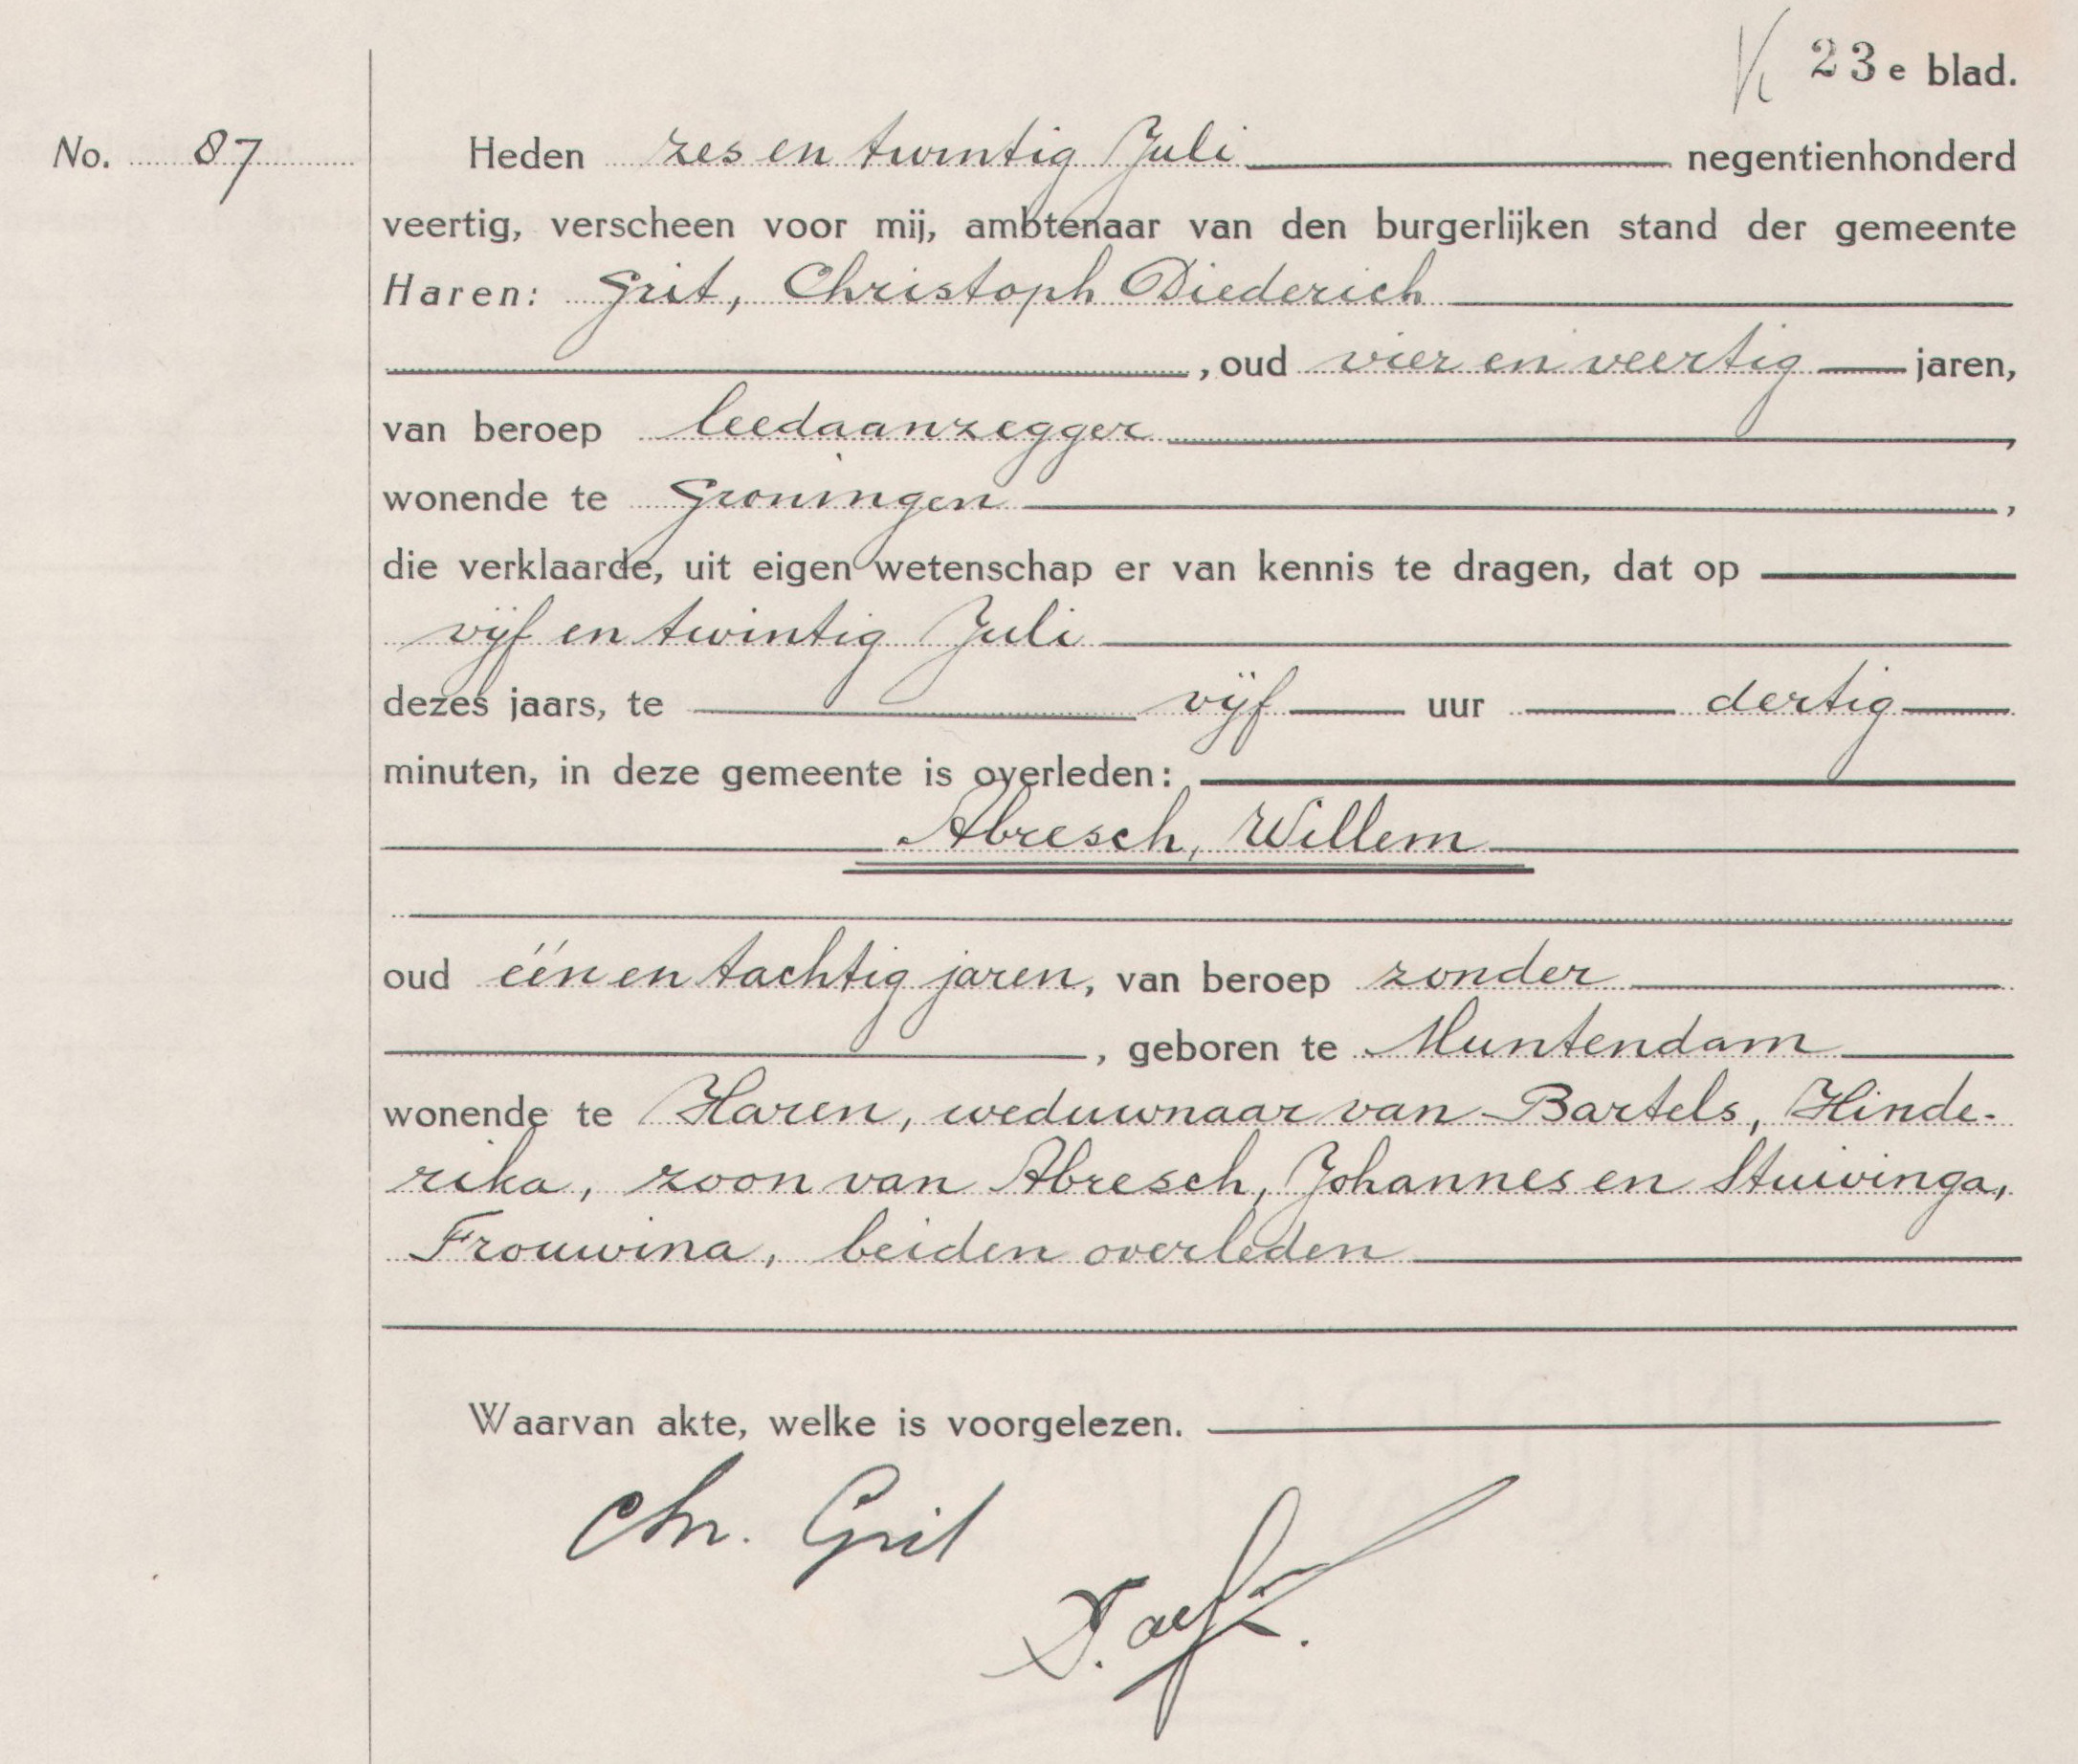 23e blad.
No. 87
Heden zes en twintig Juli negentienhonderd
veertig, verscheen voor mij, ambtenaar van den burgerlijken stand der gemeente
Haren: Grit, Christoph Diederich
, oud vier en veertig jaren,
van beroep leedaanzegger,
wonende te Groningen,
die verklaarde, uit eigen wetenschap er van kennis te dragen, dat op
vijf en twintig Juli
dezes jaars, te vijf uur dertig
minuten, in deze gemeente is overleden:
Abresch, Willem
oud één en tachtig jaren, van beroep zonder
, geboren te Muntendam
wonende te Haren, weduwnaar van Bartels, Hinde-
rika, zoon van Abresch, Johannes en Stuivinga,
Frouwina, beiden overleden
Waarvan akte, welke is voorgelezen.
Chr. Grit